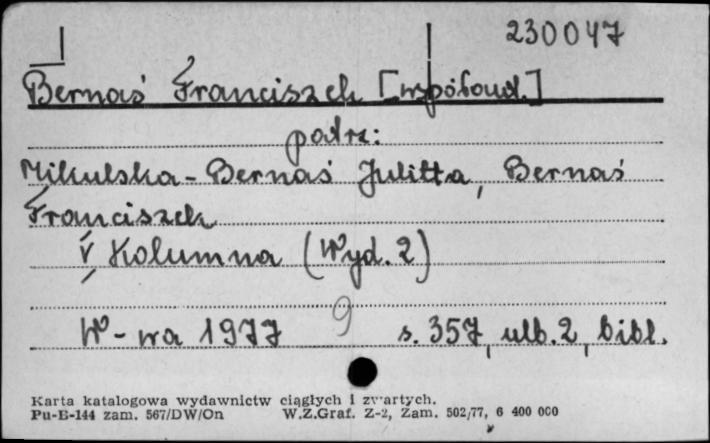 230047
Bernaś Franciszek [współaut.]
patrz:
Mikulska-Bernaś Julitta, Bernaś
Franciszek
V Kolumna (Wyd. 2)
9
W-wa 1977 s. 357, ulb. 2, bibl.
Karta katalogowa wydawnictw ciągłych i zwartych.
Pu-B-144 zam. 567/DW/On W.Z.Graf. Z-2, Zam. 502/77, 6 400 000